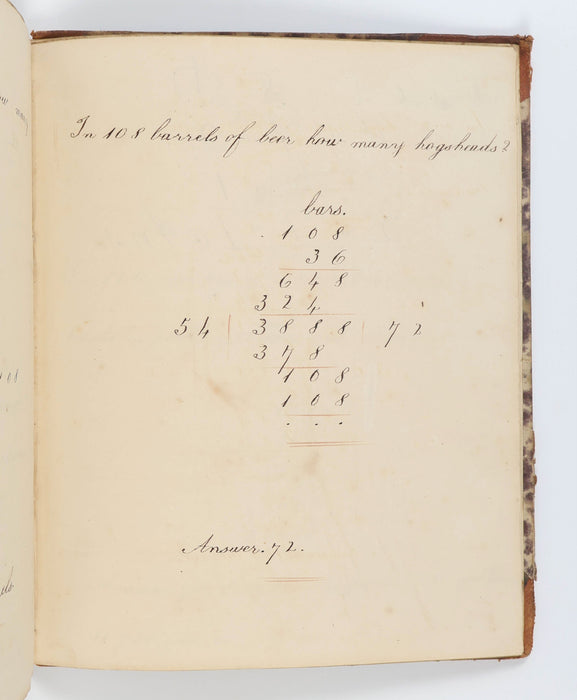 In 108 barrels of beer how many hogsheads?
bars.
108
36
648
324
54 | 3888 | 72
378
108
108
. . .
Answer. 72.